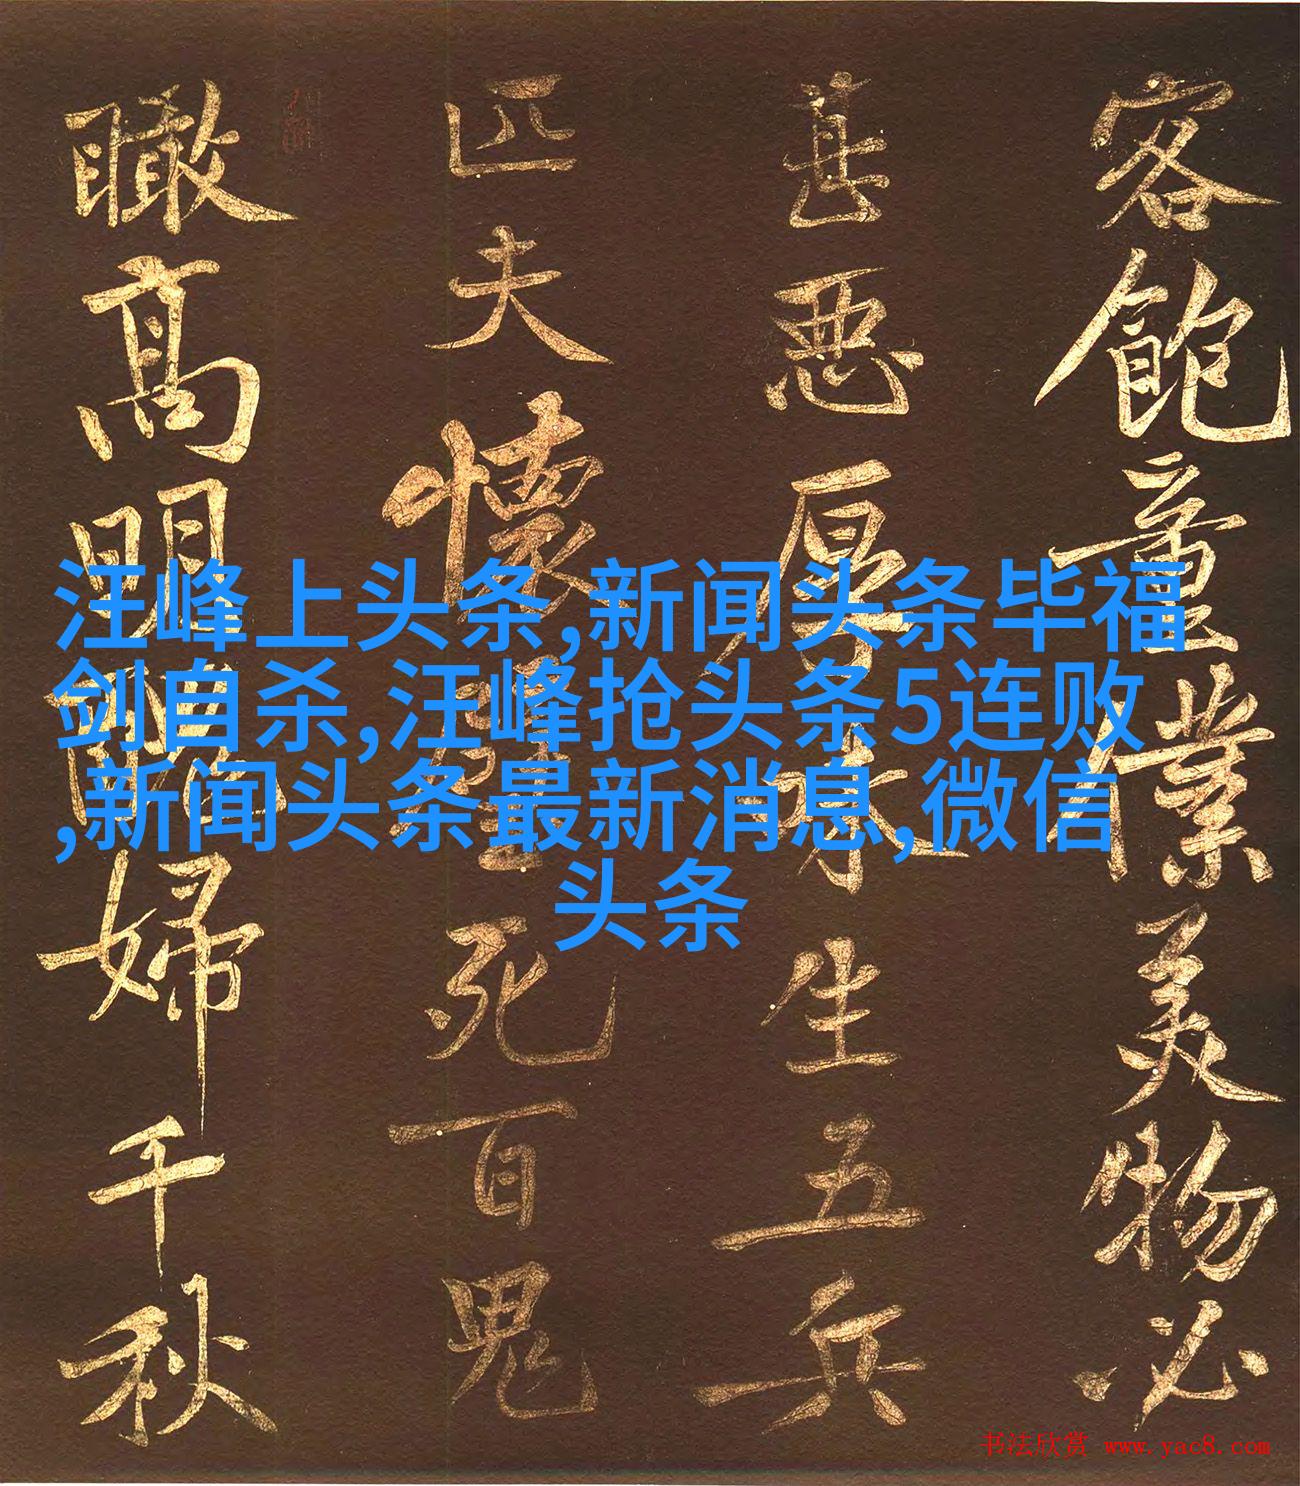 客飽童僕美物必
甚惡厚味生五兵
匹夫懷璧死百鬼
瞰高明醜婦千秋
汪峰上头条,新闻头条毕福
剑自杀,汪峰抢头条5连败
,新闻头条最新消息,微信
头条
书法欣赏 www.yac8.com